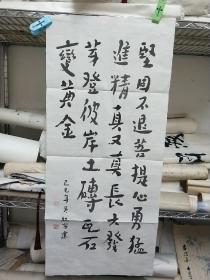 堅固不退菩提心勇猛
進精真又真長大發
芽登彼岸土磚瓦石
變黃金